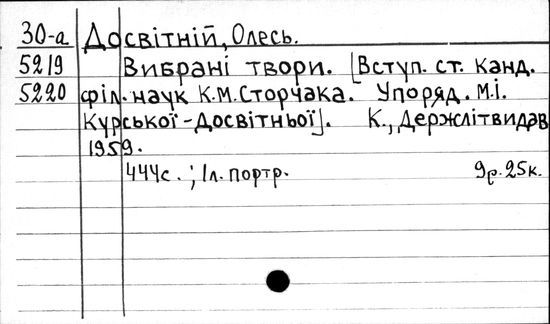 30-а Досвітній, Олесь.
5219 Вибрані твори. [Вступ. ст. канд.
5220 філ. наук К.М. Сторчака. Упоряд. М.І.
Курської-Досвітньої]. К., Держлітвидав
1959.
444с.; Іл. портр. 9р. 25к.